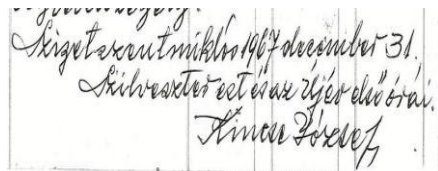 Szigetszentmiklós 1967 december 31.
Szilveszter est és az Újév első órái.
Kincse József